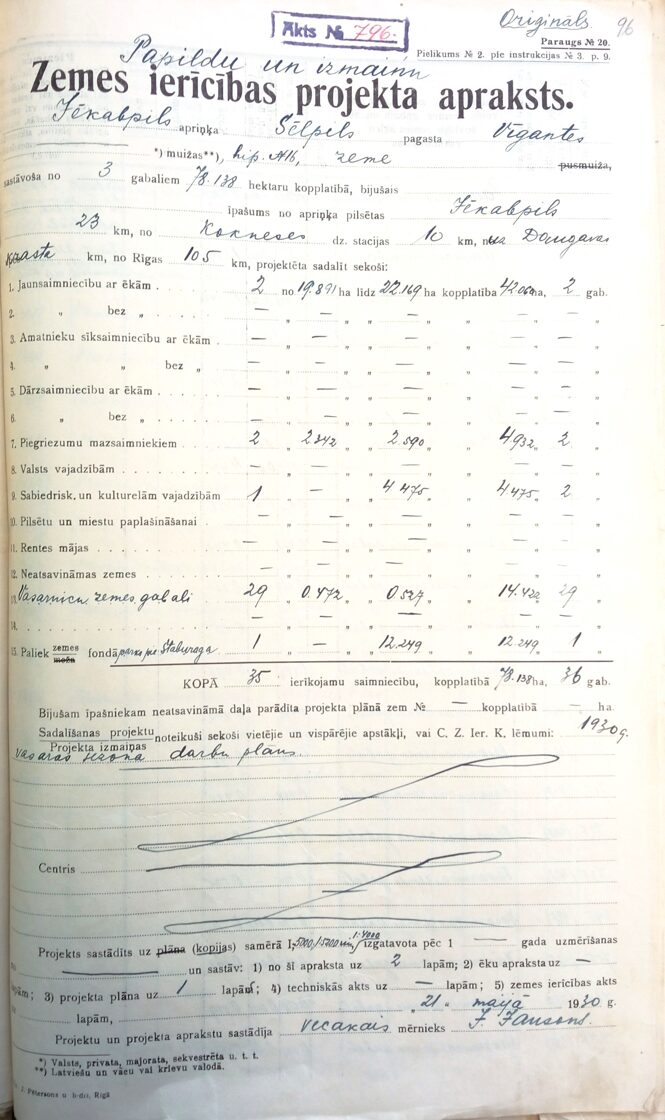 Oriģināls 96
Akts № 796.
Paraugs № 20.
Pielikums № 2. pie instrukcijas № 3. p. 9.
Papildu un izmaiņu
Zemes ierīcības projekta apraksts.
Jēkabpils apriņķa Sēlpils pagasta Vīgantes
*) muižas**), hip. №16, zeme pusmuiža,
sastāvoša no 3 gabaliem 78.138 hektaru kopplatībā, bijušais
īpašums no apriņķa pilsētas Jēkabpils
23 km, no Kokneses dz. stacijas 10 km, no Daugavas
krasta km, no Rīgas 105 km, projektēta sadalīt sekoši:
1. Jaunsaimniecību ar ēkām . 2 no 19.891 ha līdz 22.169 ha kopplatība 42.060 ha, 2 gab.
2. „ bez „ — „ — „ — „ — „ — „
3. Amatnieku sīksaimniecību ar ēkām . — „ — „ — „ — „ — „
4. „ „ bez „ — „ — „ — „ — „ — „
5. Dārzsaimniecību ar ēkām . . . . — „ — „ — „ — „ — „
6. „ bez „ . . . . — „ — „ — „ — „ — „
7. Piegriezumu mazsaimniekiem . . . 2 „ 2.342 „ 2.590 „ 4.932 „ 2 „
8. Valsts vajadzībām . . . . . . — „ — „ — „ — „ — „
9. Sabiedrisk. un kulturelām vajadzībām 1 „ — „ 4.475 „ 4.475 „ 2 „
10. Pilsētu un miestu paplašināšanai . — „ — „ — „ — „ — „
11. Rentes mājas . . . . . . — „ — „ — „ — „ — „
12. Neatsavināmas zemes . . . . — „ — „ — „ — „ — „
13. Vasarnicu zemes gabali 29 „ 0.472 „ 0.527 „ 14.422 „ 29 „
14. . . . . . . — „ — „ — „ — „ — „
15. Paliek zemes meža fondā parks pie Staburaga 1 „ — „ 12.249 „ 12.249 „ 1 „
KOPĀ 35 ierīkojamu saimniecību, kopplatībā 78.138 ha, 36 gab.
Bijušam īpašniekam neatsavināmā daļa parādīta projekta plānā zem № — kopplatībā — ha.
Sadalīšanas projektu noteikuši sekoši vietējie un vispārējie apstākļi, vai C. Z. Ier. K. lēmumi: 1930 g.
Projekta izmaiņas
vasaras sezona darbu plāns.
Centris
Projekts sastādīts uz plāna (kopijas) samērā 1:4000 izgatavota pēc 1 — gada uzmērīšanas
un sastāv: 1) no šī apraksta uz 2 lapām; 2) ēku apraksta uz —
lapām; 3) projekta plāna uz 1 lapām; 4) techniskās akts uz — lapām; 5) zemes ierīcības akts
lapām, „21 „ maijā 1930 g.
Projektu un projekta aprakstu sastādīja vecakais mērnieks J. Jansons.
*) Valsts, privata, majorata, sekvestrēta u. t. t.
**) Latviešu un vācu vai krievu valodā.
J. Petersons u b-dri, Rīgā